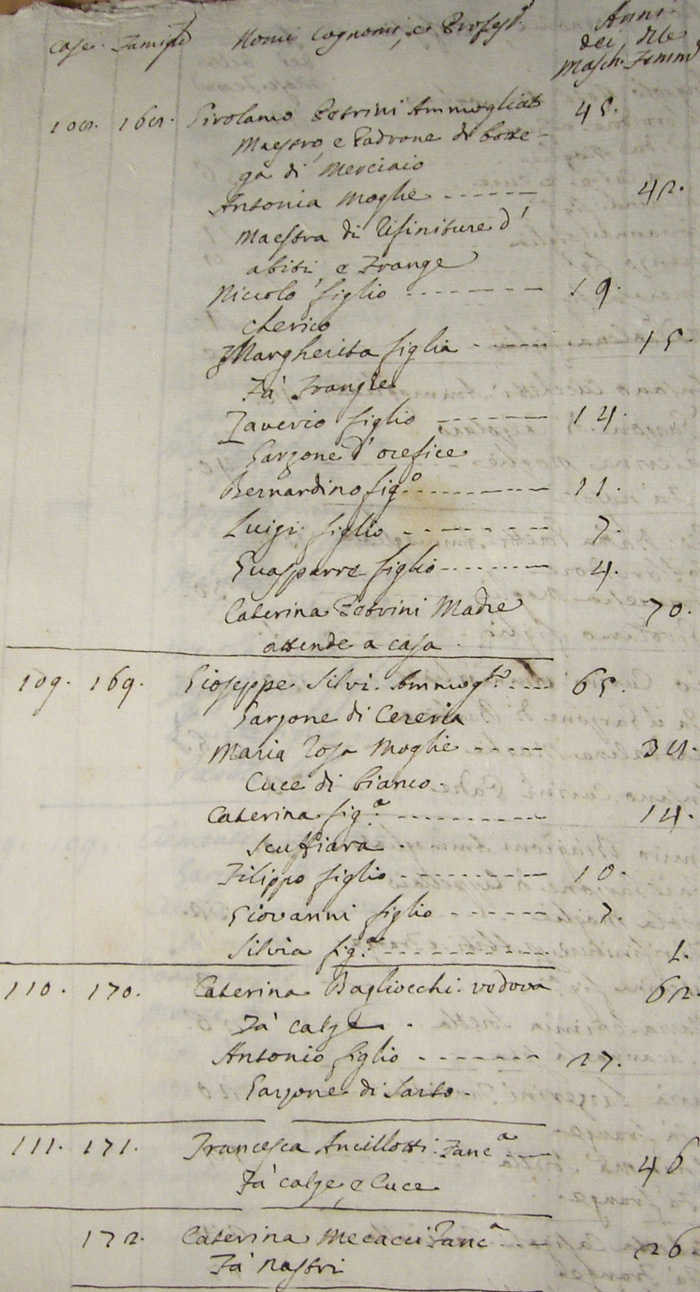 Case. Famigl Nomi Cognomi, e Profess.
Anni
dei delle
Masch. Femm
108. 168. Girolamo Petrini Ammogliato 45.
Maestro, e Padrone di botte-
ga di Merciaio
Antonia Moglie ------ 42.
Maestra di Rifiniture d'
abiti, e Frange
Niccolò figlio -------- 19.
cherico
Margherita figlia ------ 15.
Fà Frangie
Zaverio figlio ------- 14.
Garzone d'orefice
Bernardino fig.o -------- 11.
Luigi figlio -------- 7.
Guasparre figlio ------- 4.
Caterina Petrini Madre 70.
attende a casa.
109. 169. Gioseppe Silvi. Ammogl.to ---- 65.
Garzone di Cereria
Maria Rosa Moglie ----- 38.
Cuce di bianco.
Caterina fig.a --------- 14.
Scuffiara.
Filippo figlio --------- 10.
Giovanni figlio ------ 7.
Silvia fig.a ----------- 1.
110. 170. Caterina Bagliocchi. vedova 62.
Fà calze.
Antonio figlio ------- 27.
Garzone di Sarto.
111. 171. Francesca Ancillotti. Fanc.a -- 46
Fà calze, e Cuce
172. Caterina Mecacci Fanc.a -- 26.
Fà nastri